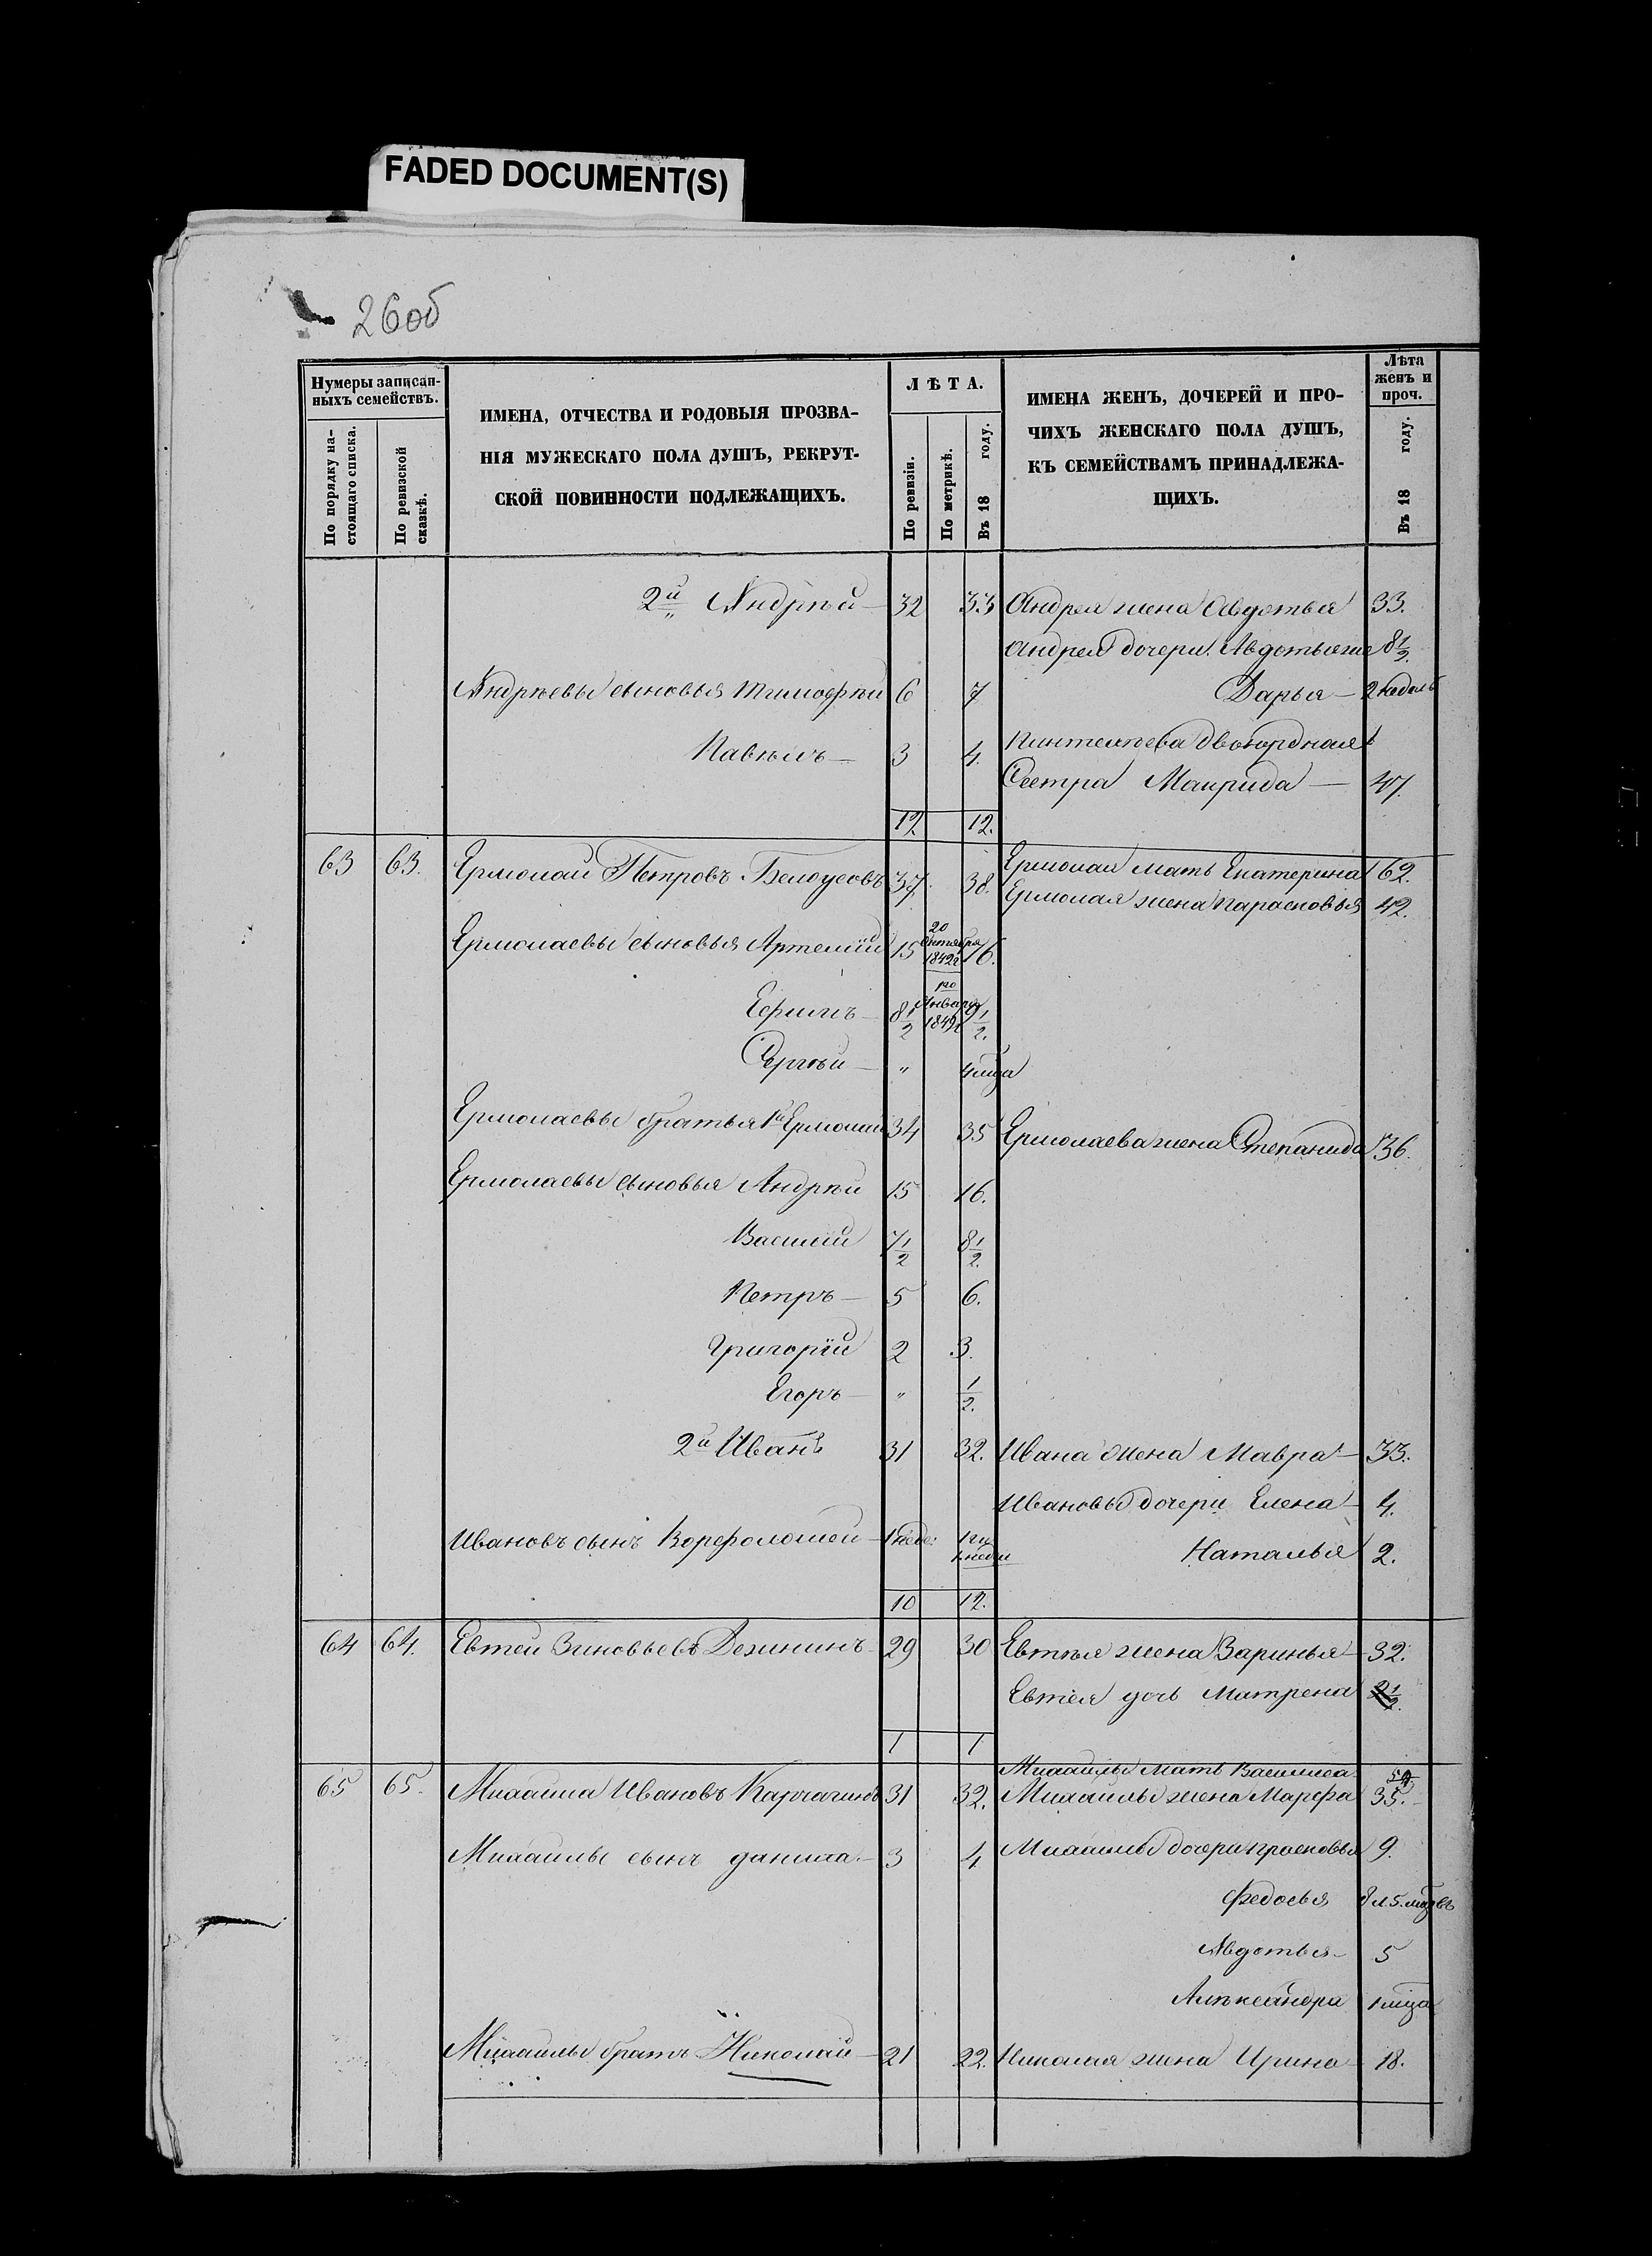 FADED DOCUMENT(S)
26об
Нумеры записан-
ныхъ семействъ.
По порядку на-
стоящаго списка.
По ревизской
сказкѣ.
ИМЕНА, ОТЧЕСТВА И РОДОВЫЯ ПРОЗВА-
НІЯ МУЖЕСКАГО ПОЛА ДУШЪ, РЕКРУТ-
СКОЙ ПОВИННОСТИ ПОДЛЕЖАЩИХЪ.
ЛѢТА.
По ревизіи.
По метрикѣ.
Въ 18 году.
ИМЕНА ЖЕНЪ, ДОЧЕРЕЙ И ПРО-
ЧИХЪ ЖЕНСКАГО ПОЛА ДУШЪ,
КЪ СЕМЕЙСТВАМЪ ПРИНАДЛЕЖА-
ЩИХЪ.
Лѣта
женъ и
проч.
Въ 18 году.
2й Андрѣй 32 33 Андрея жена Авдотья 33.
Андрея дочери. 8 1/2.
Андрѣевы сыновья Тимофѣй 6 7 Дарья 2 недель
Павѣлъ 3 4. двоюрдная
Сестра Маирида 47.
12 12.
63 63. Ермолай Петровъ Белоусовъ 37. 38. Ермолая мать Екатерина 62.
Ермолая жена Парасковья 42.
Ермолаевы сыновья Артемій 15 20 Октября 1842г 16.
Ефимъ 8 1/2 Января 1849г 9 1/2.
Сергѣй " 4 мца
Ермолаевы братья 1й Ермолай 34 35 Ермолаева жена Степанида 36.
Ермолаевы сыновья Андрѣй 15 16.
Василій 7 1/2 8 1/2.
Петръ 5 6.
Григорій 2 3.
Егоръ " 1/2.
2й Иванъ 31 32. Ивана жена Мавра 33.
Ивановы дочери Елена 4.
Ивановъ сынъ Ворфоломей Наталья 2.
10 12.
64 64. Евтей Зиновьевъ 29 30 Евтѣя жена Варинья 32.
Евтѣя дочь Матрена
1 1
Михайлы мать Василиса
65 65. Михайла Ивановъ Карчагинъ 31 32. Михайлы жена Марфа 35.
Михайлы сынъ данила 3 4 Михайлы дочери прасковья 9.
Федосья 8 л. 5. мцовъ
Авдотья 5
Алѣксандра 1 мца
Михайлы братъ Николай 21 22. Николая жена Ирина 18.